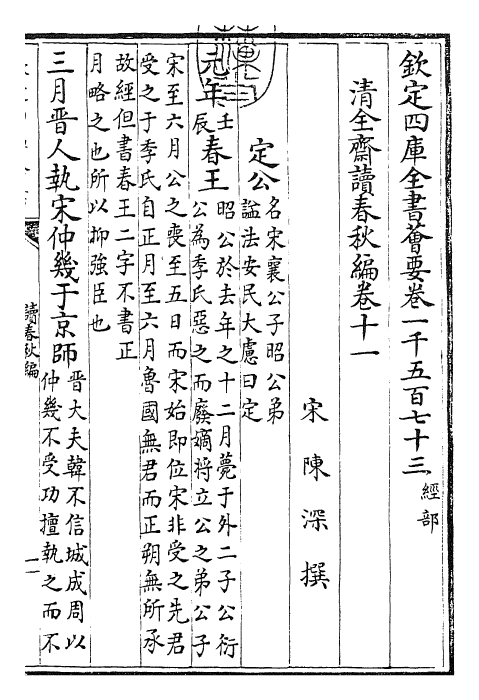 欽定四庫全書薈要卷一千五百七十三 經部
清全齋讀春秋編卷十一
宋 陳深 撰
定公 名宋襄公子昭公弟
謚法安民大慮曰定
元年 壬辰 春王 昭公於去年之十二月薨于外二子公衍
公為季氏惡之而廢嫡將立公之弟公子
宋至六月公之喪至五日而宋始即位宋非受之先君
受之于季氏自正月至六月魯國無君而正朔無所承
故經但書春王二字不書正
月略之也所以抑強臣也
三月晋人執宋仲幾于京師 晋大夫韓不信城成周以
仲幾不受功擅執之而不
讀春秋編
一